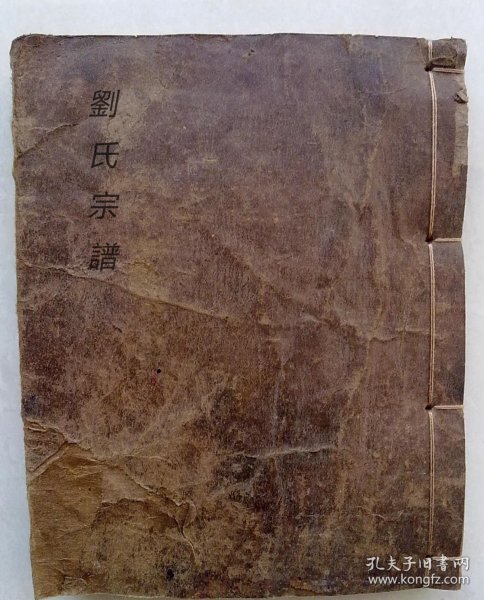 劉氏宗譜
孔夫子旧书网
www.kongfz.com